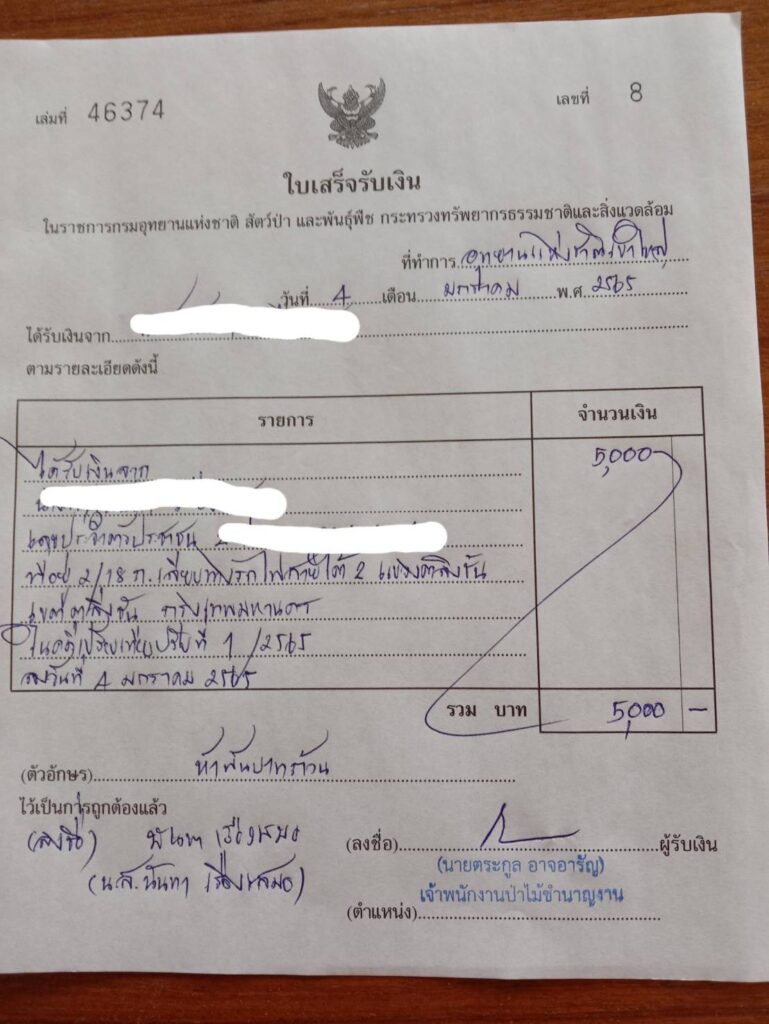 เล่มที่ 46374
เลขที่ 8
ใบเสร็จรับเงิน
ในราชการกรมอุทยานแห่งชาติ สัตว์ป่า และพันธุ์พืช กระทรวงทรัพยากรธรรมชาติและสิ่งแวดล้อม
ที่ทำการ อุทยานแห่งชาติเขาใหญ่
วันที่ 4 เดือน มกราคม พ.ศ. 2565
ได้รับเงินจาก
ตามรายละเอียดดังนี้
รายการ จำนวนเงิน
ได้รับเงินจาก 5,000
เลขประจำตัวประชาชน
ที่อยู่ 2/18 ถ.เลียบทางรถไฟสายใต้ 2 แขวงตลิ่งชัน
เขตตลิ่งชัน กรุงเทพมหานคร
ในคดีเปรียบเทียบปรับที่ 1/2565
ลงวันที่ 4 มกราคม 2565
รวม บาท 5,000 –
(ตัวอักษร) ห้าพันบาทถ้วน
ไว้เป็นการถูกต้องแล้ว
(ลงชื่อ) นันทา เรืองเสมอ
(น.ส.นันทา เรืองเสมอ)
(ลงชื่อ) ผู้รับเงิน
(นายตระกูล อาจอารัญ)
เจ้าพนักงานป่าไม้ชำนาญงาน
(ตำแหน่ง)